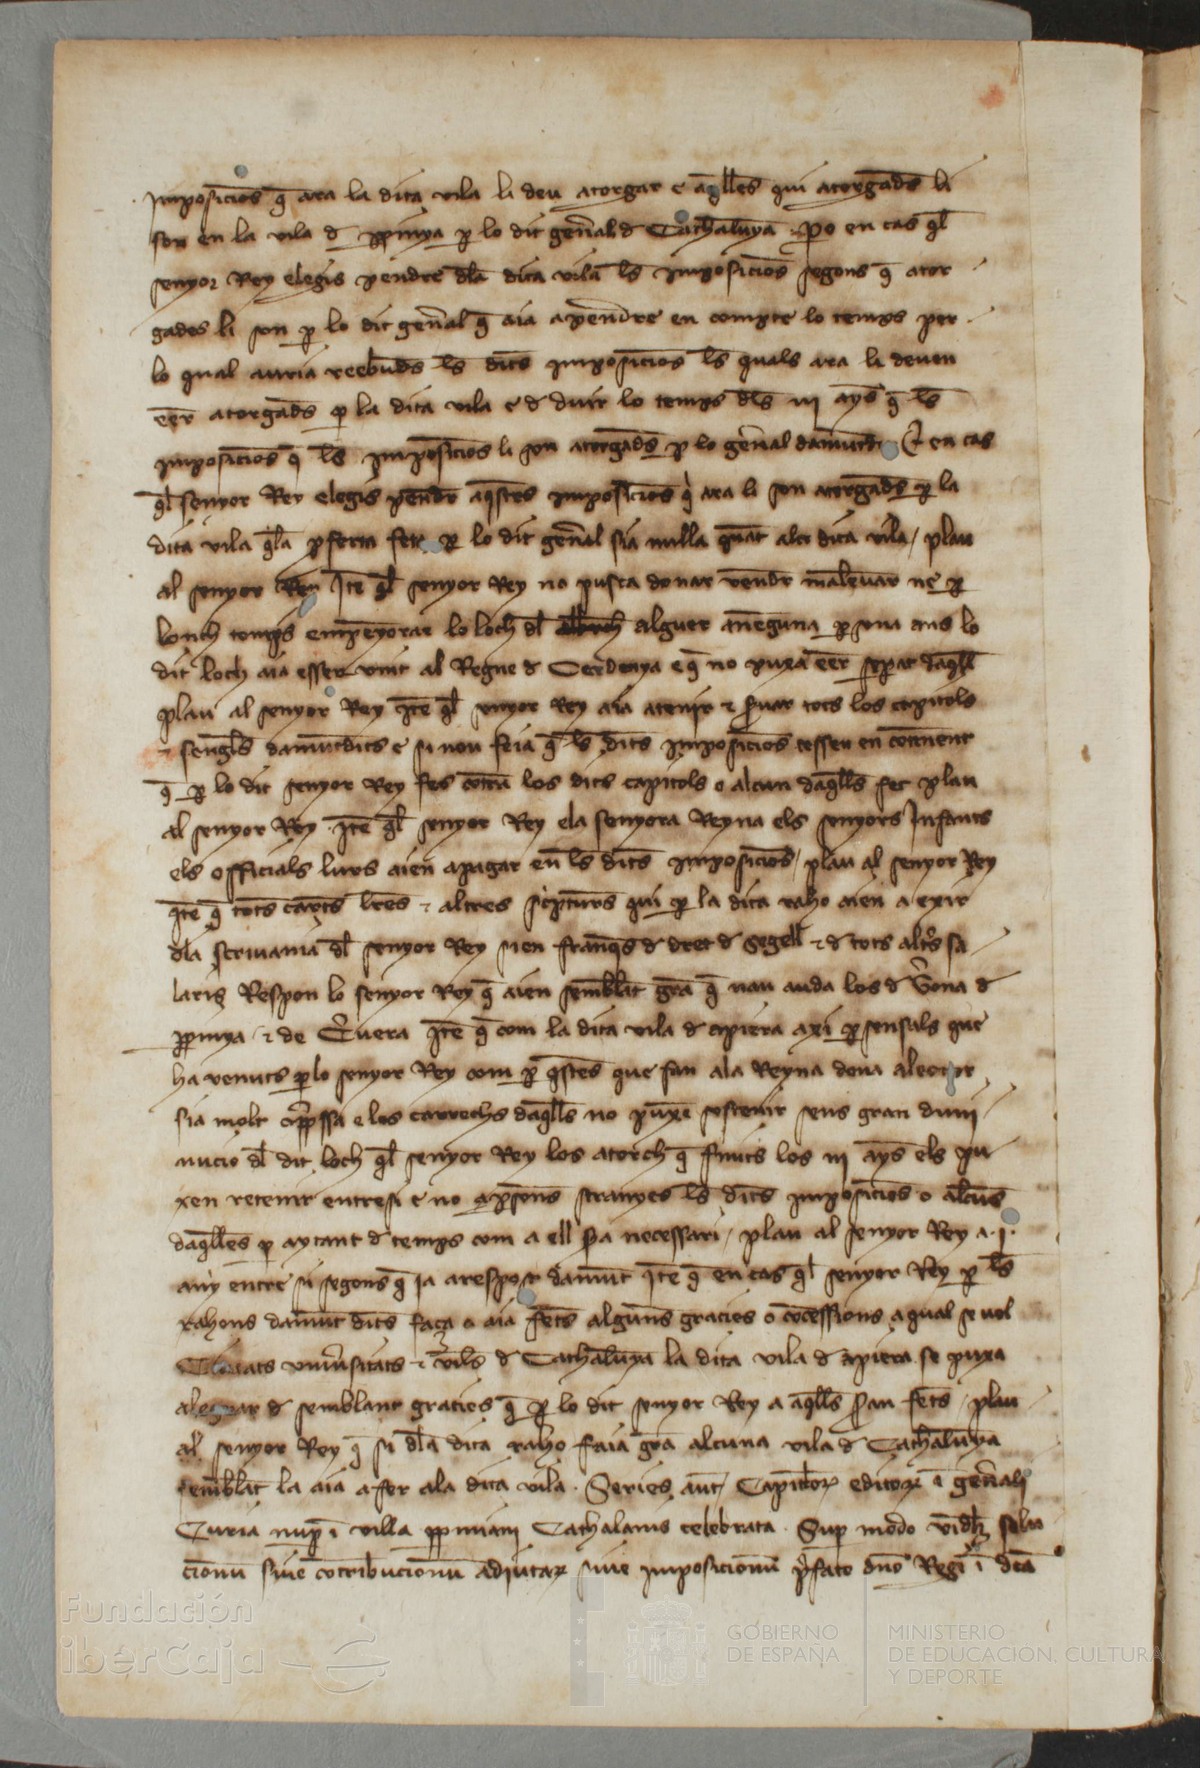 imposicions q̄ ara la dita vila li deu atorgar e aq̄lles qui atorgades li
son en la vila d ꝑpinya ꝑ lo dit gen̄al d Cathalunya . ꝑo en cas q̄l
senyor Rey elegis pendre dla dita vila les imposicions segons q̄ ator
gades li son ꝑ lo dit gen̄al q̄ aia a pendre en compte lo temps per
lo qual auria reebudes les dites imposicions les quals ara li deuen
eer̄ atorgades ꝑ la dita vila e d duir lo temps dls iij anys q̄ les
imposicions q̄ les imposicions li son atorgades ꝑ lo gen̄al damunt dit . E en cas
q̄l senyor Rey elegis pendr̄ aq̄stes imposicions q̄ ara li son atorgades ꝑ la
dita vila q̄la ꝓferta feta ꝑ lo dit gen̄al sia nulla quāt ala dita vila / plau
al senyor Rey Itē q̄l senyor Rey no pusca donar vendr̄ maleuar ne ꝑ
lonch temps empenyorar lo loch dl alguer a neguna ꝑsona ans lo
dit loch aia esser vnit al Regne d Cerdenya e q̄ no puxa eer̄ sepat daq̄ll
plau al senyor Rey Itē q̄l senyor Rey aia atenir & s̄uar tots los capitols
& sengles damūtdits e si nou feia q̄ les dites imposicions cessen en cōtenent
q̄ ꝑ lo dit senyor Rey fos cōtra los dits capitols o alcun daq̄lls fet plau
al senyor Rey . Itē q̄l senyor Rey ela senyora Reyna els senyors Infants
els officials lurs aien apagar en les dites imposicions / plau al senyor Rey
Itē q̄ totes cartes lr̄es & altres scriptures qui ꝑ la dita raho aien a exir
dla scriuania dl senyor Rey sien franq̄s d dret d segell & d tots altrs sa
laris Respon lo senyor Rey q̄ aien semblāt grā q̄ nan auda los d Gerona d
ꝑpinya & de Ceruera Itē q̄ com la dita vila d apiera axi ꝑ sensals que
ha venuts ꝑ lo senyor Rey com ꝑ q̄stes que fan ala Reyna dona aleonor
sia molt opp̄ssa e los carrechs daq̄lls no puxē sostenir sens gran dimi
nucio dl dit loch q̄l senyor Rey los atorch q̄ finits los iij anys els pu
xen retenir entre si e no a ꝑsones stranyes les dites imposicions o alcunes
daq̄lles ꝑ aytant d temps com a ell s̄a necessari / plau al senyor Rey a .j.
any entre si segons q̄ ja a respost damūt Itē q̄ en cas q̄l senyor Rey ꝑ les
rahons damūt dites faça o aia fetes algunes gracies o cōcessions a qual se vol
Ciutats vniu̅sitats & viles d Cathalunya la dita vila d apiera se puxa
alegrar d semblant gracies q̄ ꝑ lo dit senyor Rey a aq̄lls s̄an fetes . plau
al senyor Rey q̄ si dla dita raho faia grā alcuna vila d Cathalunya
semblāt la aia a fer ala dita vila . Series aut̄ Capitlorꝝ editorꝝ ī gen̄ali
Curia nup̄ ī villa ꝑpiniani Cathalanis celebrata . Sup̄ modo vidꝫ solu
cionū siue cōtribucionū adiutarꝝ siue imposicionū p̄fato dn̄o Regi ī dcā
Fundación
iberCaja
GOBIERNO
DE ESPAÑA
MINISTERIO
DE EDUCACION, CULTURA
Y DEPORTE